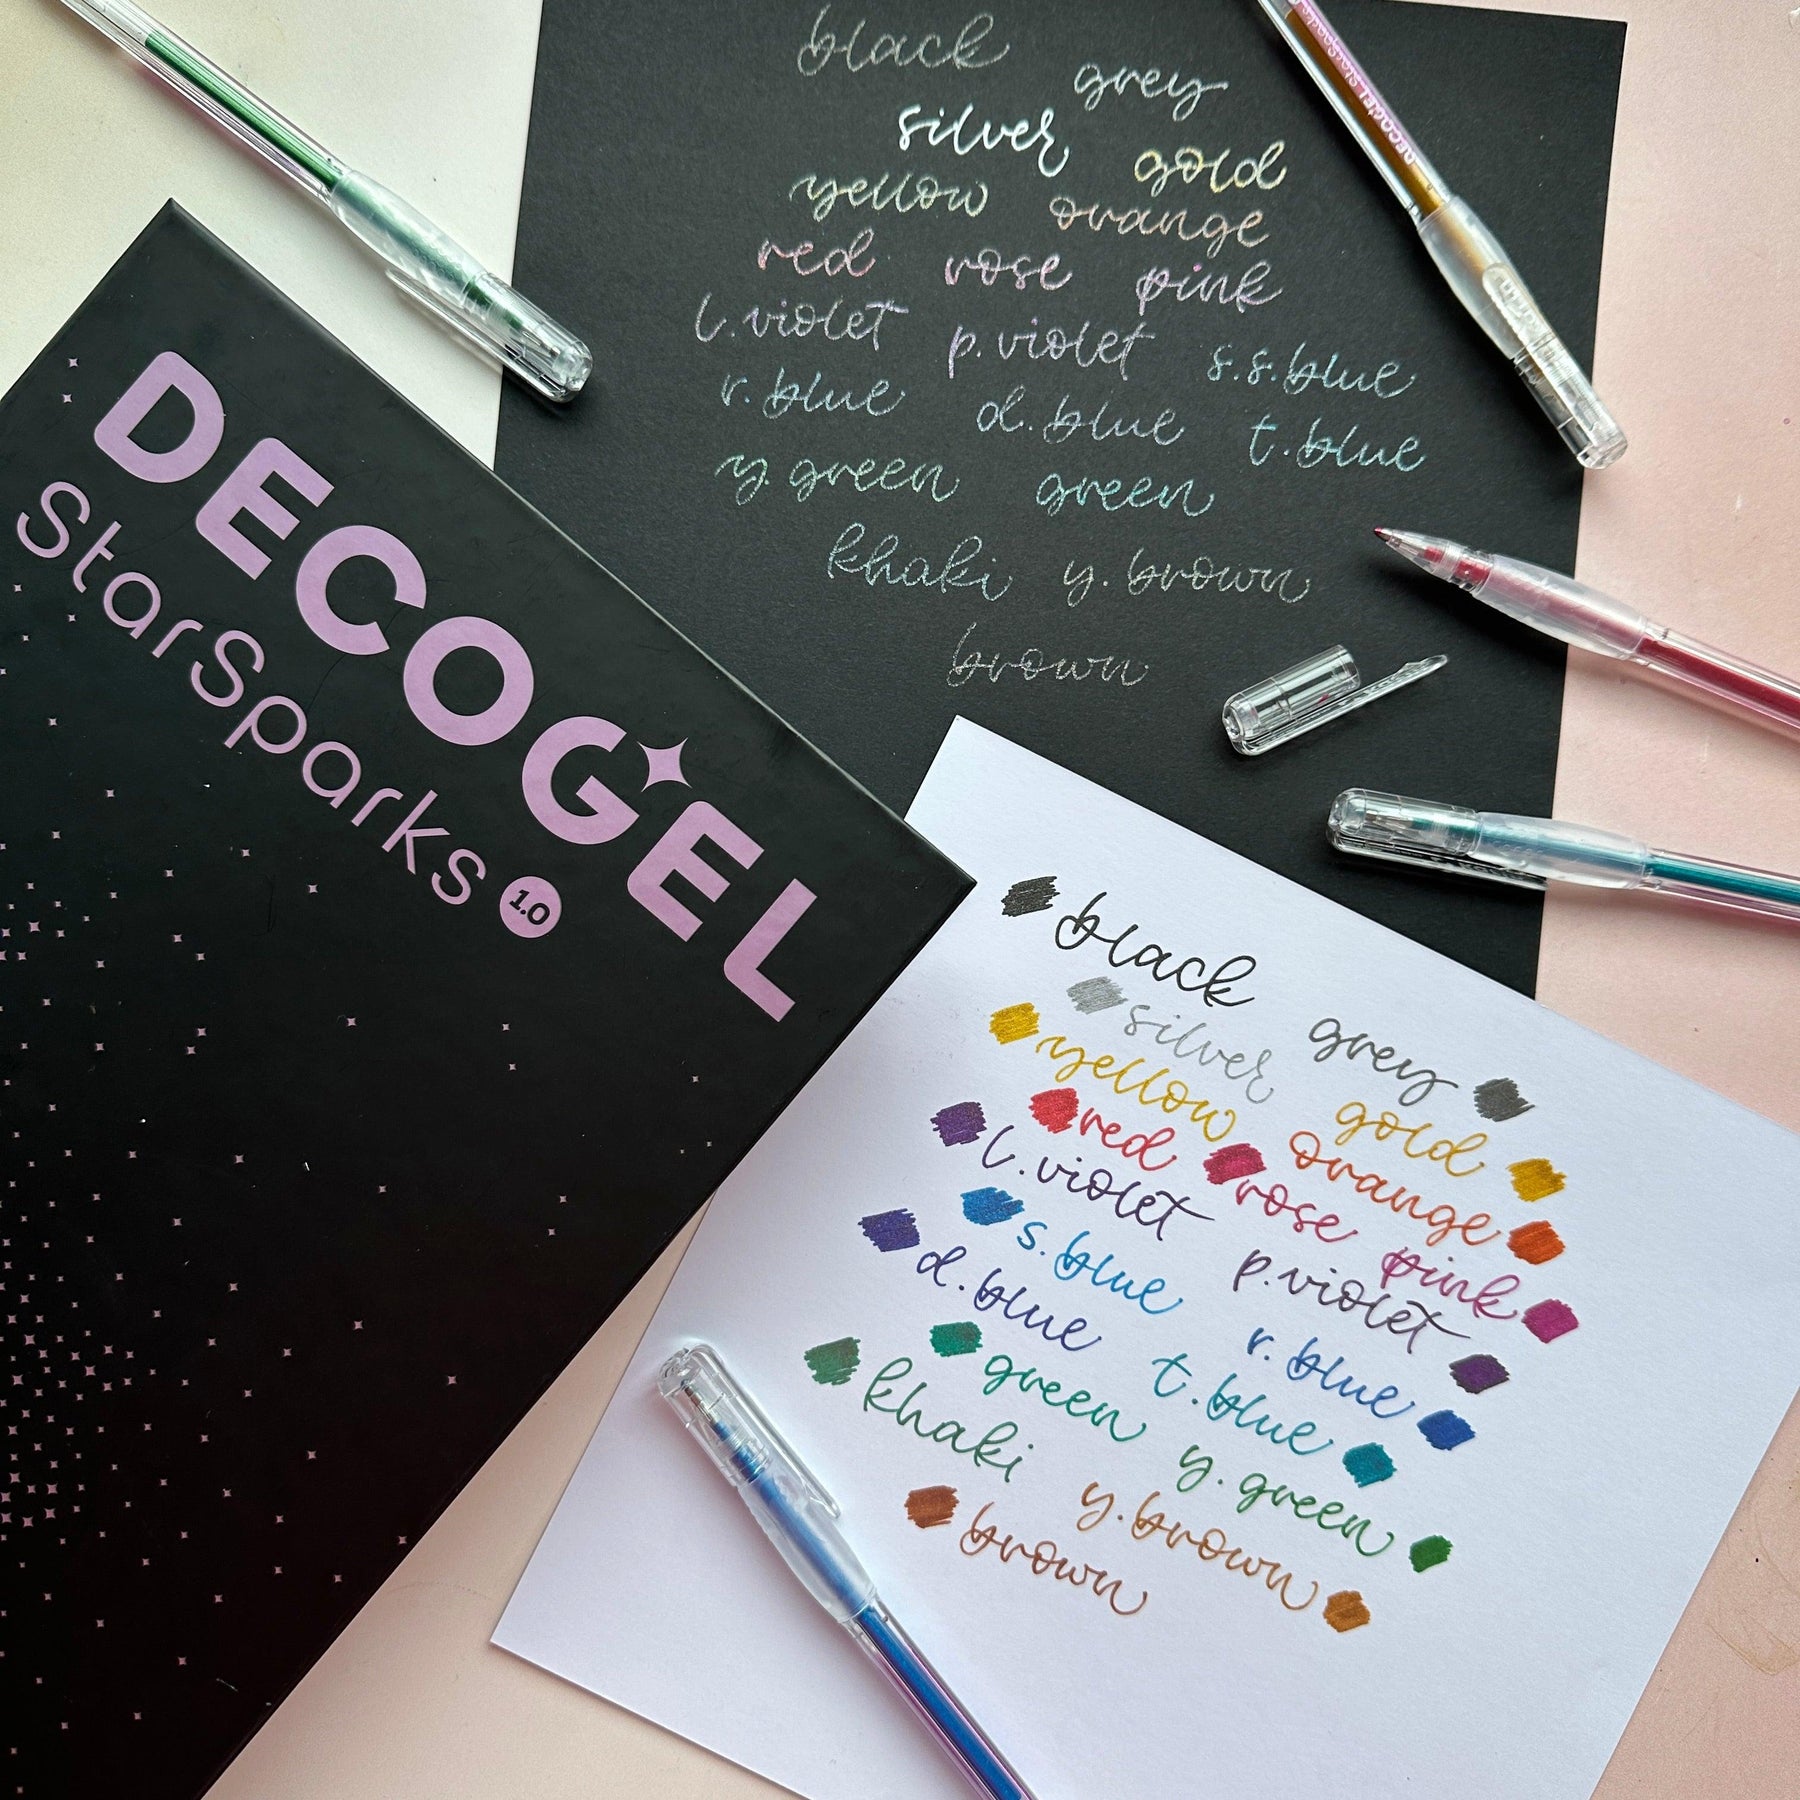 DECOGEL
StarSparks 1.0
black grey
silver gold
yellow orange
red rose pink
l.violet p.violet s.s.blue
r.blue d.blue t.blue
y.green green
khaki y.brown
brown
DECOGEL StarSparks
black grey
silver gold
yellow orange
red rose pink
l.violet p.violet
s.blue r.blue
d.blue t.blue
green y.green
khaki y.brown
brown